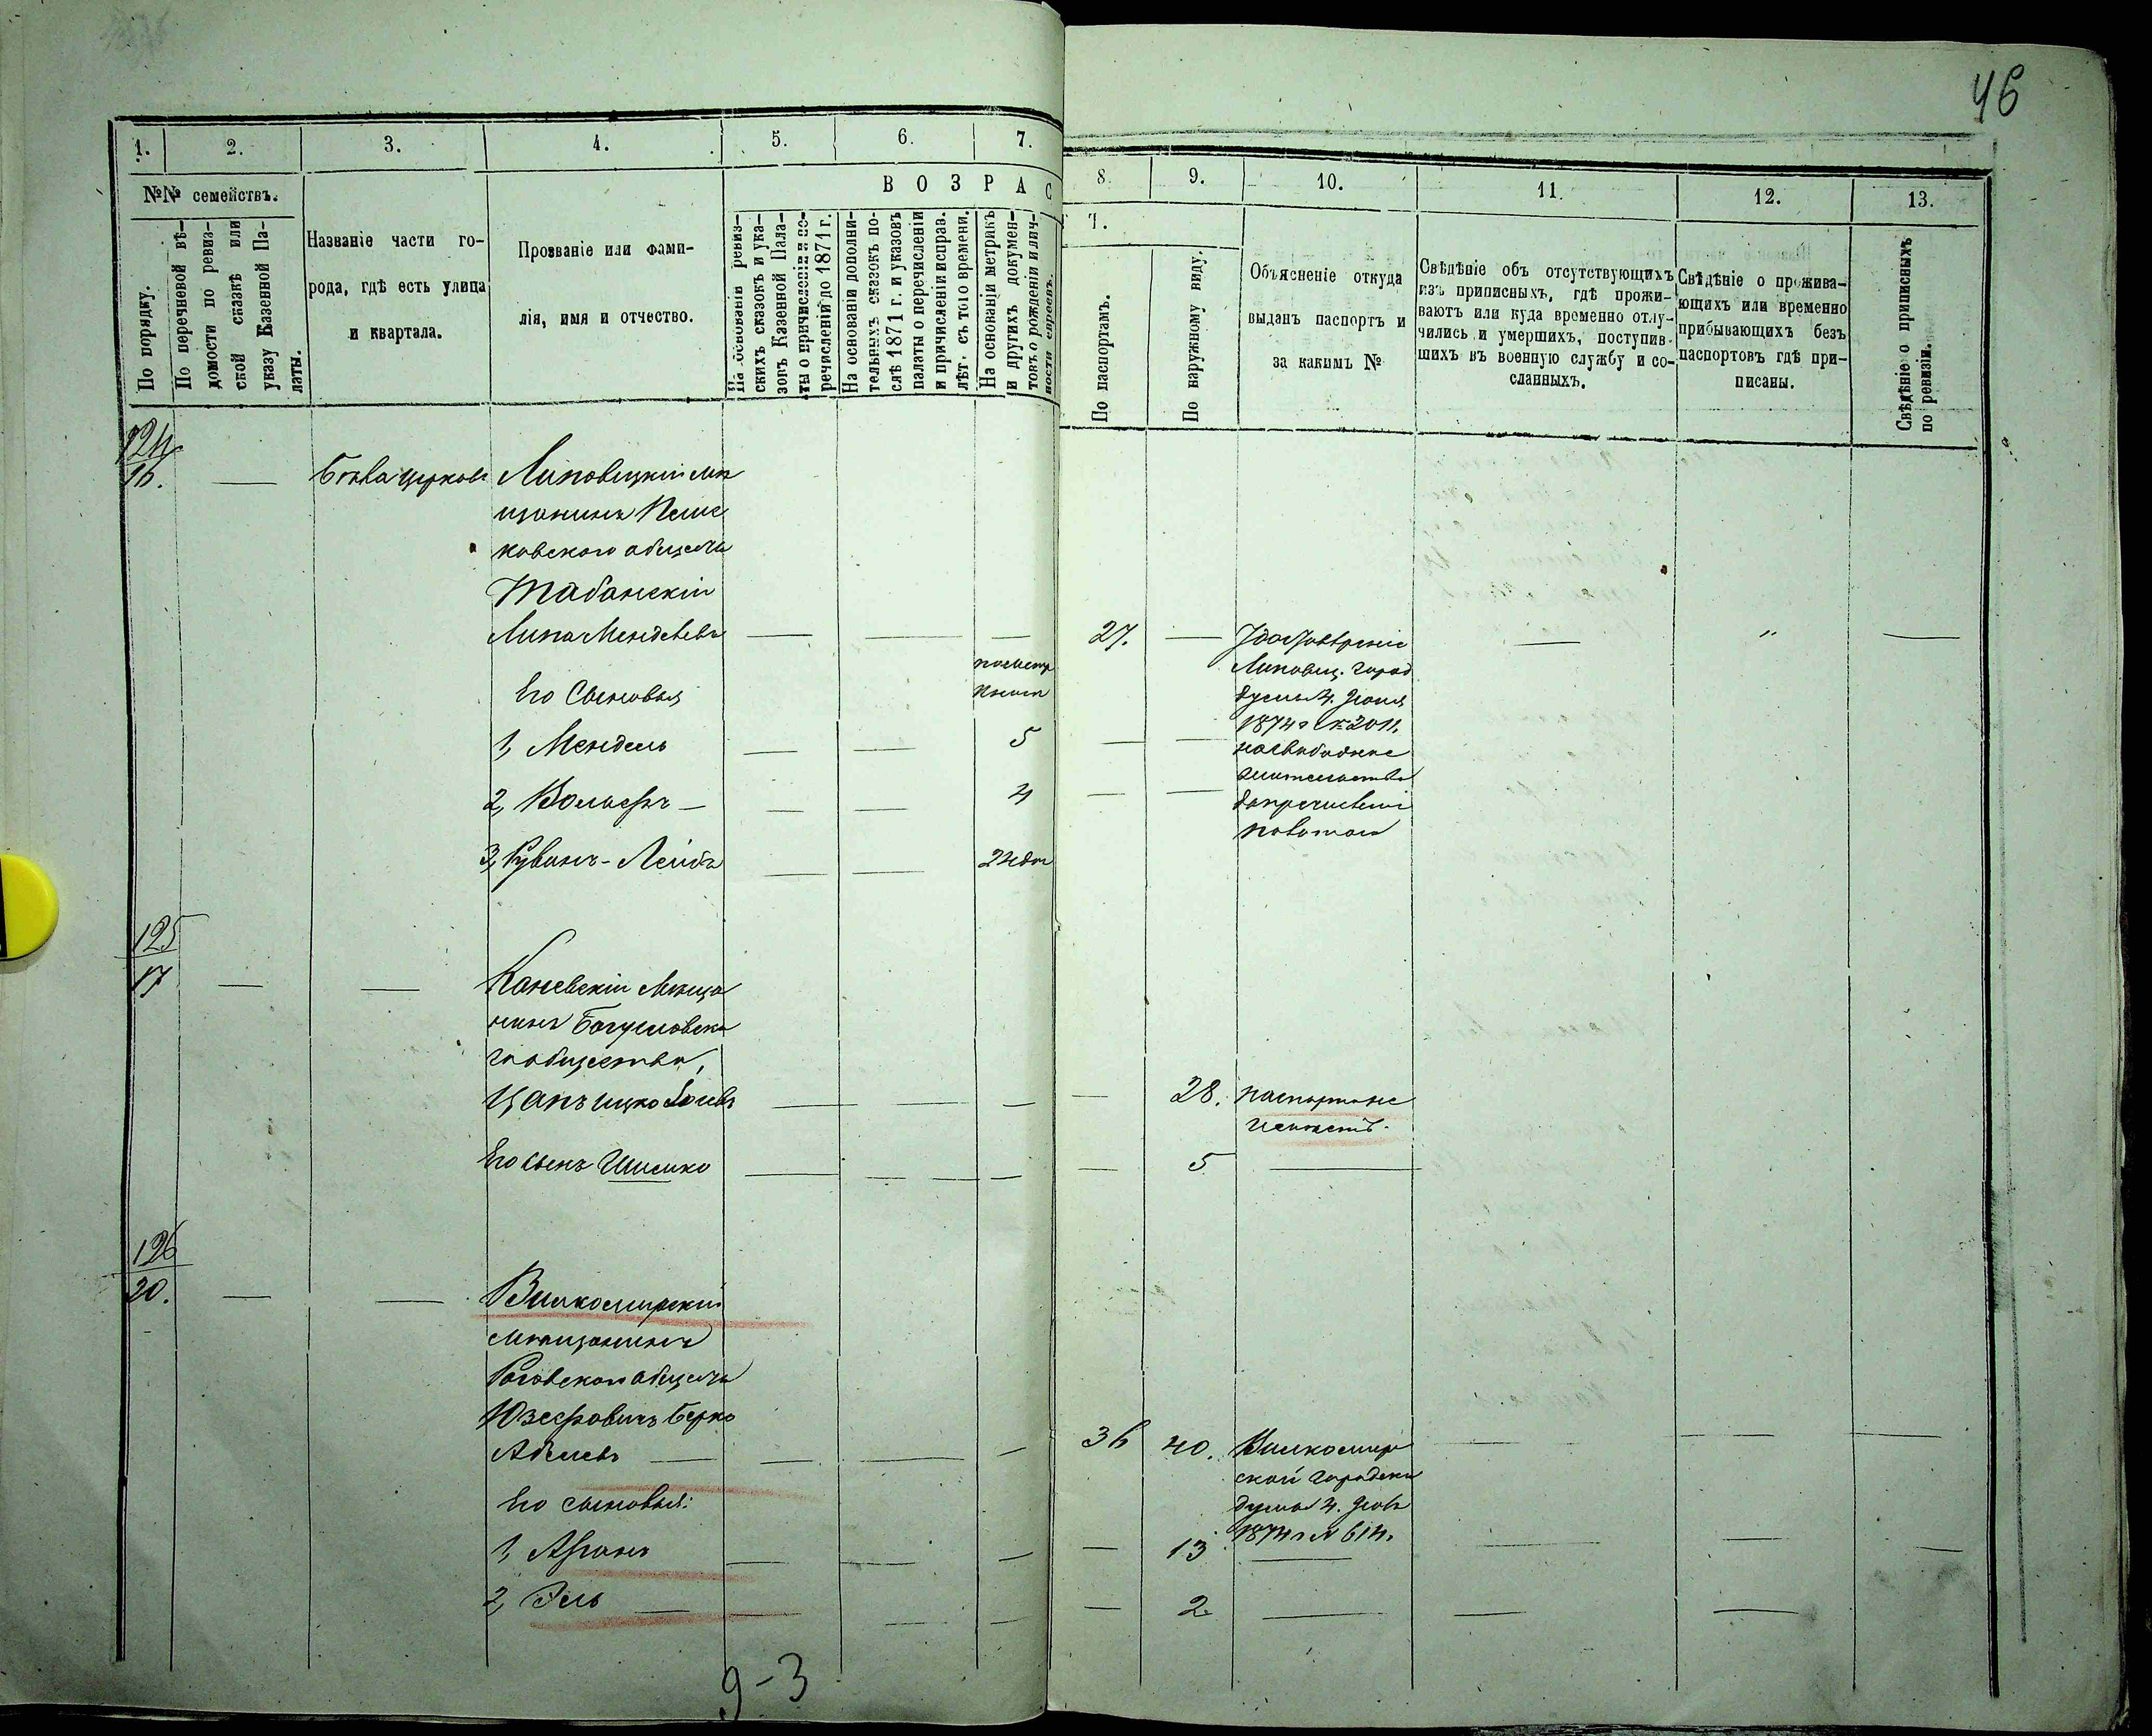 46
1.
2.
3.
4.
5.
6.
7.
8.
9.
10.
11.
12.
13.
№№ семействъ.
По порядку.
По перечневой вѣ-
домости по ревиз-
ской сказкѣ или
указу Казенной Па-
латы.
Названіе части го-
рода, гдѣ есть улица
и квартала.
Прозваніе или фами-
лія, имя и отчество.
В О З Р А С
Т.
На основаніи ревиз-
скихъ сказокъ и ука-
зовъ Казенной Пала-
ты о причисленіи и пе-
речисленій до 1871 г.
На основаніи дополни-
тельныхъ сказокъ по-
слѣ 1871 г. и указовъ
палаты о перечисленіи
и причисленіи исправ.
лѣт. съ того времени.
На основаніи метрикъ
и другихъ докумен-
товъ о рожденіи и лич-
ности евреевъ.
По паспортамъ.
По наружному виду.
Объясненіе откуда
выданъ паспортъ и
за какимъ №
Свѣдѣніе объ отсутствующихъ
изъ приписныхъ, гдѣ прожи-
ваютъ или куда временно отлу-
чились и умершихъ, поступив-
шихъ въ военную службу и со-
сланныхъ.
Свѣдѣніе о прожива-
ющихъ или временно
прибывающихъ безъ
паспортовъ гдѣ при-
писаны.
Свѣдѣніе о приписныхъ
по ревизіи.
124
16.
Липовецкій мѣ
щанинъ
ковского общества
Шабанскій
Липа Менделевъ
27.
Удостовѣреніе
Липовец. город
думы 4. Іюня
1874 г. № 2011.
Его Сыновья
по метр
1, Мендель
5
2, Вольфъ
4
3, Рувинъ-Лейба
2 нед
125
17
Каневскій мѣща
нинъ Богуславска
го общества,
Цапъ Ицко
28.
паспорта не
Его сынъ Шмилко
5
126
20.
Вилкомирскій
мѣщанинъ
Роговского общества
Юзефовичъ Берко
Абелевъ
36
40.
Вилкомир
ской городской
думы 4.
1874 г. № 614.
Его сыновья:
1, Аронъ
13
2, Эль
2.
9-3